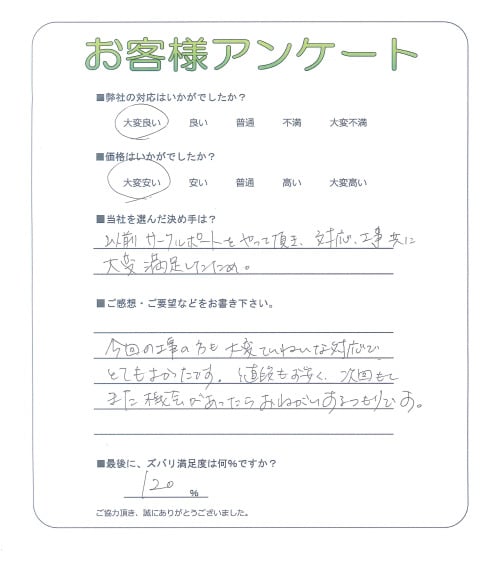 お客様アンケート
■弊社の対応はいかがでしたか？
大変良い 良い 普通 不満 大変不満
■価格はいかがでしたか？
大変安い 安い 普通 高い 大変高い
■当社を選んだ決め手は？
以前サークルポートをやって頂き、対応、工事共に
大変満足したため。
■ご感想・ご要望などをお書き下さい。
今回の工事の方も大変ていねいな対応で
とてもよかったです。値段もお安く、次回も
また機会があったらおねがいするつもりです。
■最後に、ズバリ満足度は何%ですか？
120 %
ご協力頂き、誠にありがとうございました。